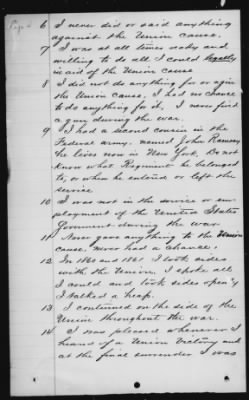 Page 2
6 I never did or said anything
against the Union cause.
7 I was at all times ready and
willing to do all I could legally
in aid of the Union cause
8 I did not do anything for or agin
the Union Cause, I had no chance
to do anything for it, I never fired
a gun during the war.
9 I had a second cousin in the
Federal army. named John Ramsey
he lives now in New York, do not
know what Regiment he belonged
to, or when he entered or left the
service
10 I was not in the service or em-
ployment of the United States
Government during the war
11 Never gave anything to the Union
cause, never had a chance.
12 In 1860 and 1861 I took sides
with the Union. I spoke all
I could and took sides openly
I talked a heap.
13 I continued on the side of the
Union throughout the war.
14 I was pleased whenever I
heard of a Union Victory and
at the final surrender I was